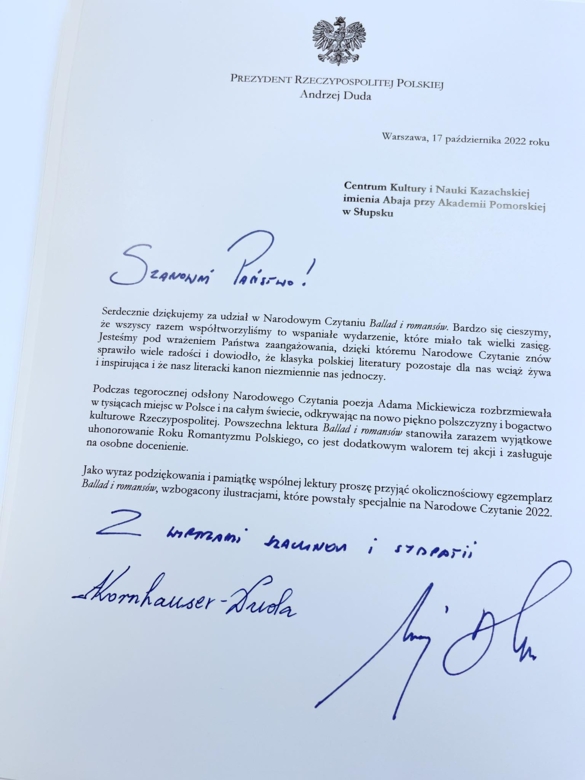 PREZYDENT RZECZYPOSPOLITEJ POLSKIEJ
Andrzej Duda
Warszawa, 17 października 2022 roku
Centrum Kultury i Nauki Kazachskiej
imienia Abaja przy Akademii Pomorskiej
w Słupsku
Szanowni Państwo!
Serdecznie dziękujemy za udział w Narodowym Czytaniu Ballad i romansów. Bardzo się cieszymy,
że wszyscy razem współtworzyliśmy to wspaniałe wydarzenie, które miało tak wielki zasięg.
Jesteśmy pod wrażeniem Państwa zaangażowania, dzięki któremu Narodowe Czytanie znów
sprawiło wiele radości i dowiodło, że klasyka polskiej literatury pozostaje dla nas wciąż żywa
i inspirująca i że nasz literacki kanon niezmiennie nas jednoczy.
Podczas tegorocznej odsłony Narodowego Czytania poezja Adama Mickiewicza rozbrzmiewała
w tysiącach miejsc w Polsce i na całym świecie, odkrywając na nowo piękno polszczyzny i bogactwo
kulturowe Rzeczypospolitej. Powszechna lektura Ballad i romansów stanowiła zarazem wyjątkowe
uhonorowanie Roku Romantyzmu Polskiego, co jest dodatkowym walorem tej akcji i zasługuje
na osobne docenienie.
Jako wyraz podziękowania i pamiątkę wspólnej lektury proszę przyjąć okolicznościowy egzemplarz
Ballad i romansów, wzbogacony ilustracjami, które powstały specjalnie na Narodowe Czytanie 2022.
Z wyrazami szacunku i sympatii
AKornhauser-Duda